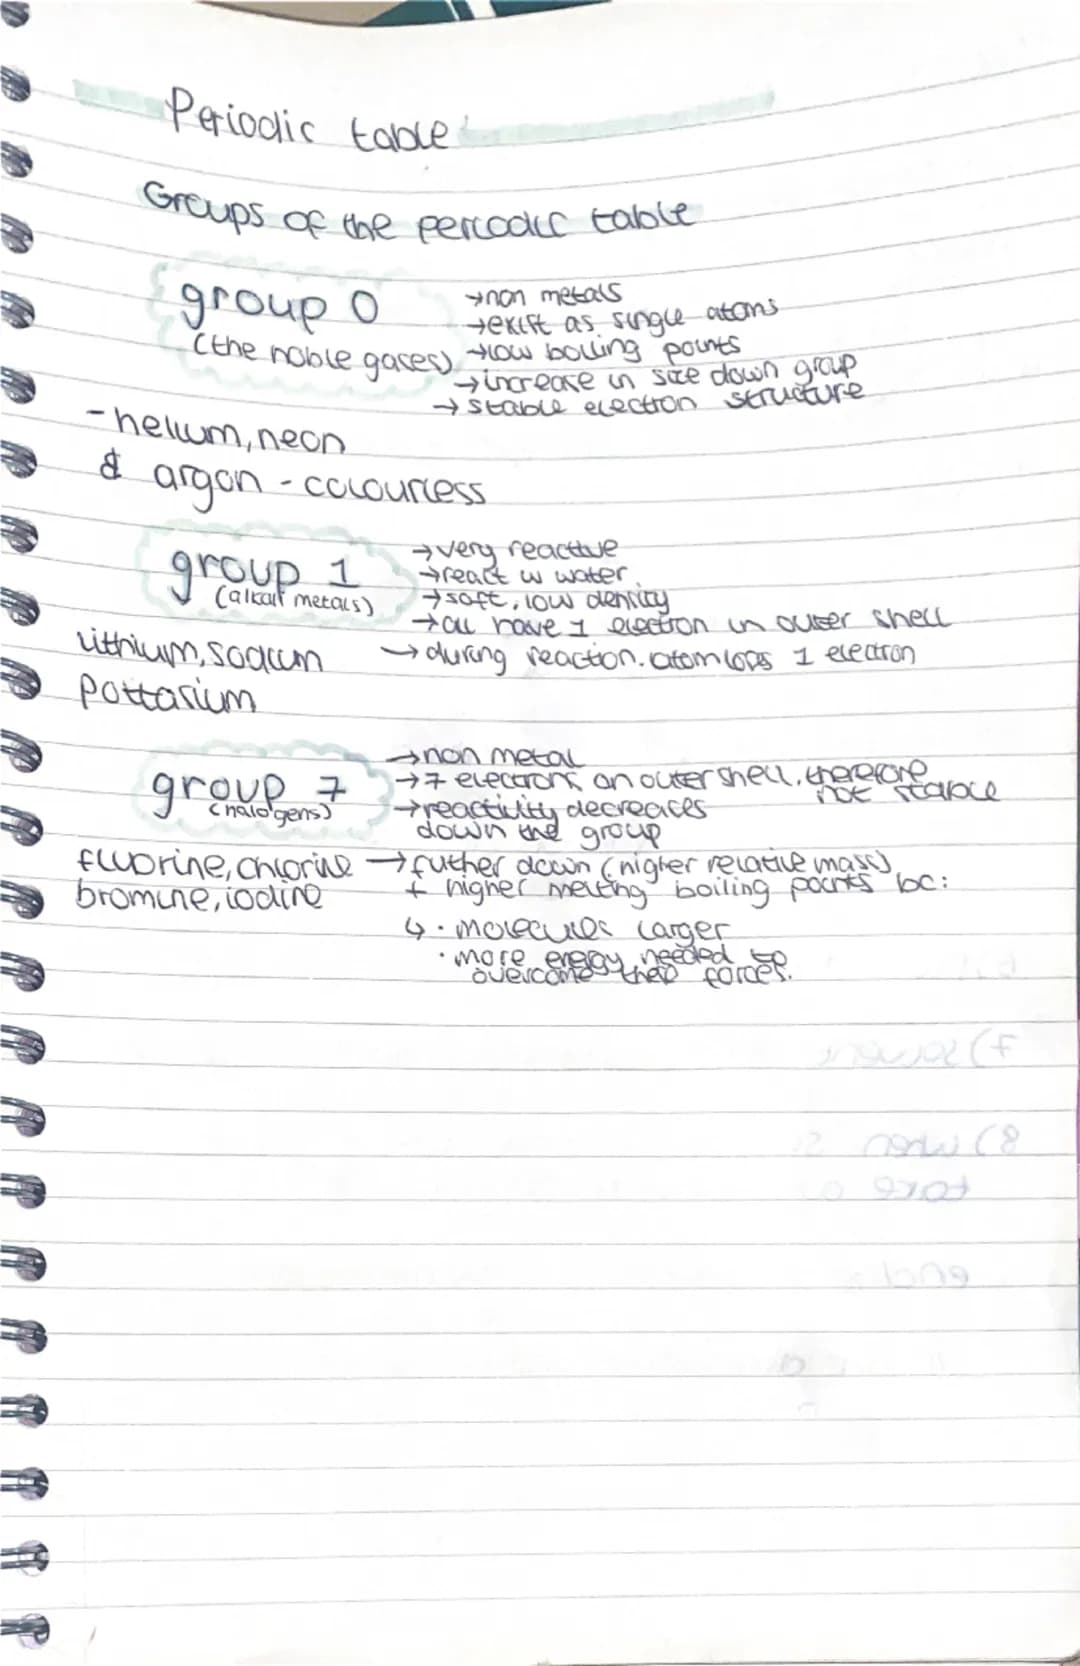 Periodic table
Groups of the periodic table
group 0
(the noble gases)
→non metals
→exist as single atoms
→low boiling points
→increase in size down group
→stable electron structure
-helium, neon
& argon - colourless
group 1
(alkali metals)
→very reactive
→react w water
→soft, low density
→all have 1 electron in outer shell
→during reaction. atom lops 1 electron
Lithium, sodium
Pottasium
group 7
(halogens)
→non metal
→7 electrons on outer shell, therefore
not stable
→reactivity decreases
down the group
fluorine, chlorine
bromine, iodine
→futher down (higher relative mass)
+ higher melting boiling points bc:
↳ · molecules larger
· more energy needed to
overcome their forces.
7)
8) when
take